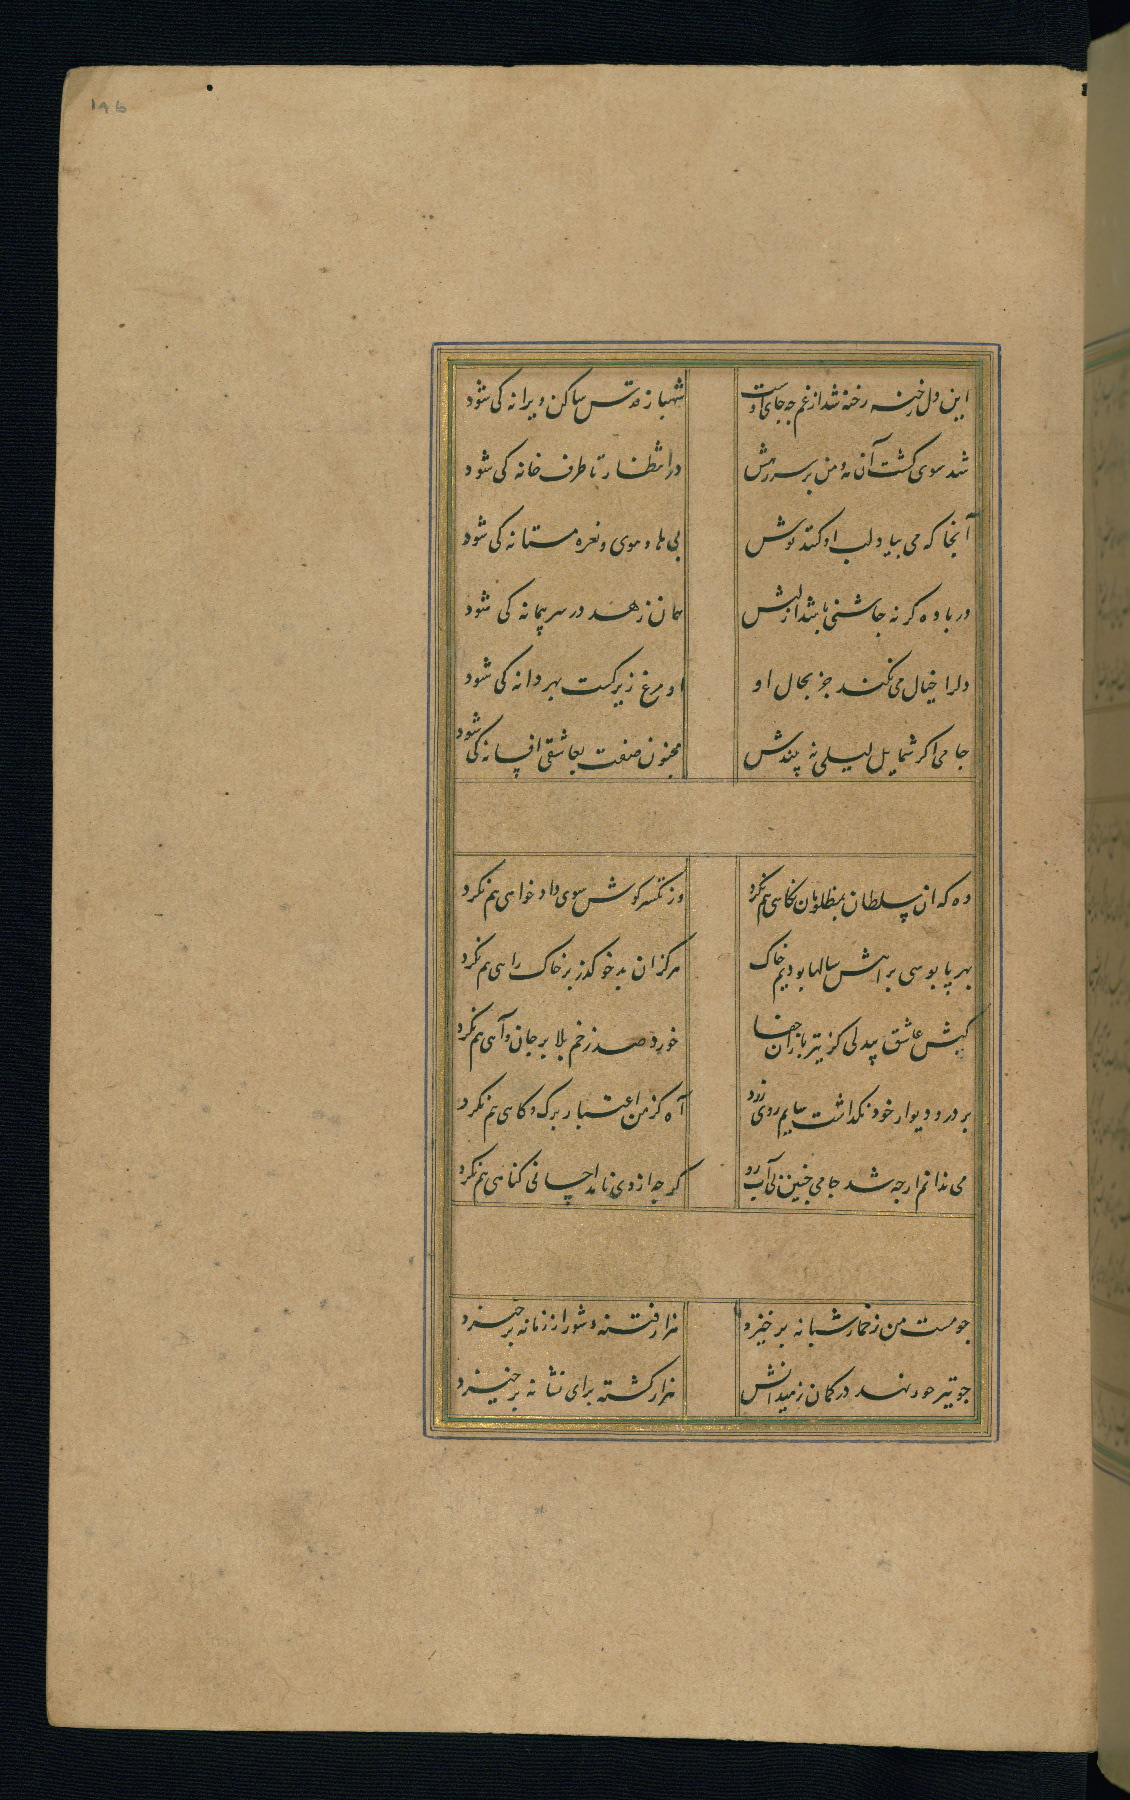 ۱۹۵
این دل خرنه رخنه شد از غم چه جای اوست شهباز قدس ساکن ویرانه کی شود
شد سوی کشت آن مه و من بر سر رهش در انتظار تا طرف خانه کی شود
آنجا که می بیاد لب او کنند نوش بی های و هوی و نعره مستانه کی شود
در باده کر نه چاشنی باشد از لبش زهد در سر پیمانه کی شود
دل را خیال می نکند جز بخال او او مرغ زیرکست بهر دانه کی شود
جامی اکر شمایل لیلی نه بیندش مجنون صفت بعاشقی افسانه کی شود
وه که ان سلطان بمظلومان نکاهی هم نکرد وز تکبر کوش سوی دادخواهی هم نکرد
بهر پابوسی براهش سالها بودیم خاک هرکز ان بدخو کذر بر خاک راهی هم نکرد
کیش عاشق بیدلی کز تیرباران جفا خورد صد زخم بلا بر جان و آهی هم نکرد
بر در و دیوار خود نکذاشت سایم روی زرد آه کز من اعتبار برک کاهی هم نکرد
می ندانم ازچه شد جامی چنین بی آب رو کرچه از وی نامد احسانی کناهی هم نکرد
چو مست من ز خمار شبانه برخیزد هزار فتنه و شور از زمانه برخیزد
چو تیر خود نهد در کمان ز میدانش هزار کشته برای نشانه برخیزد